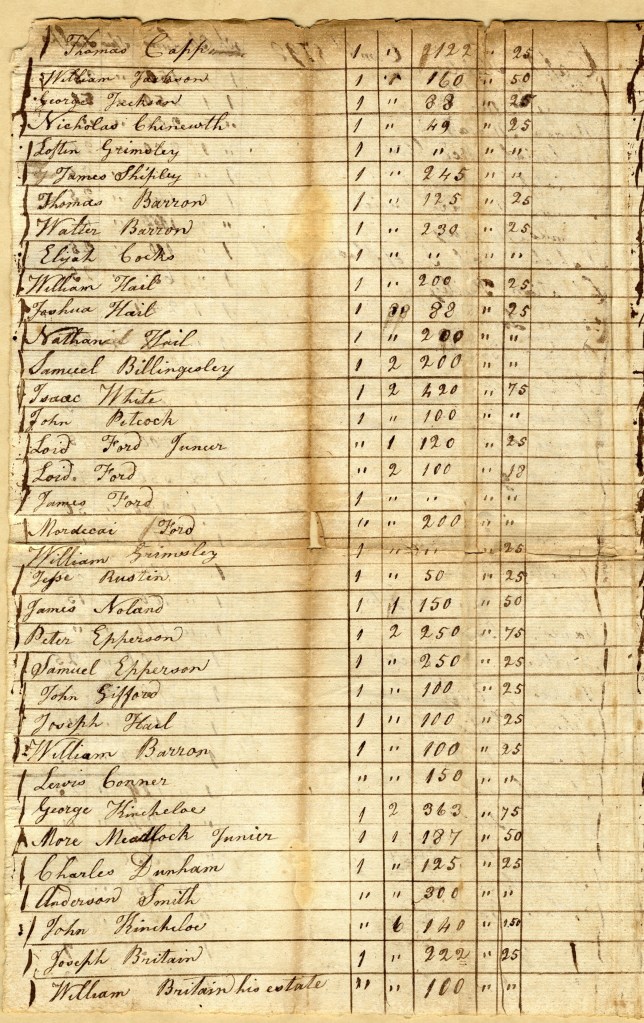 Thomas Capp 1 " 2122 " 25
William Jackson 1 " 160 " 50
George Jackson 1 " 88 " 25
Nicholas Chinewth 1 " 49 " 25
Loftin Grimsley 1 " " " "
James Shipley 1 " 245 " "
Thomas Barron 1 " 125 " 25
Walter Barron 1 " 230 " 25
Elijah Cocks 1 " " " "
William Hail 1 " 200 " 25
Joshua Hail 1 " 88 " 25
Nathaniel Hail 1 " 200 " "
Samuel Billingsley 1 2 200 " "
Isaac White 1 2 420 " 75
John Pitcock 1 " 100 " "
Loid Ford Junier " 1 120 " 25
Loid Ford " 2 100 " 18
James Ford 1 " " " "
Mordecai Ford " " 200 " "
William Grimsley 1 " " " 25
Jesse Rustin 1 " 50 " 25
James Noland 1 1 150 " 50
Peter Epperson 1 2 250 " 75
Samuel Epperson 1 " 250 " 25
John Gifford 1 " 100 " 25
Joseph Hail 1 " 100 " 25
William Barron 1 " 100 " 25
Lewis Conner " " 150 " "
George Kincheloe 1 2 363 " 75
More Meadlock Junier 1 1 187 " 50
Charles Dunham 1 " 125 " 25
Anderson Smith " " 300 " "
John Kincheloe " 6 140 " 150
Joseph Britain 1 " 222 " 25
William Britain his estate " " 100 " "